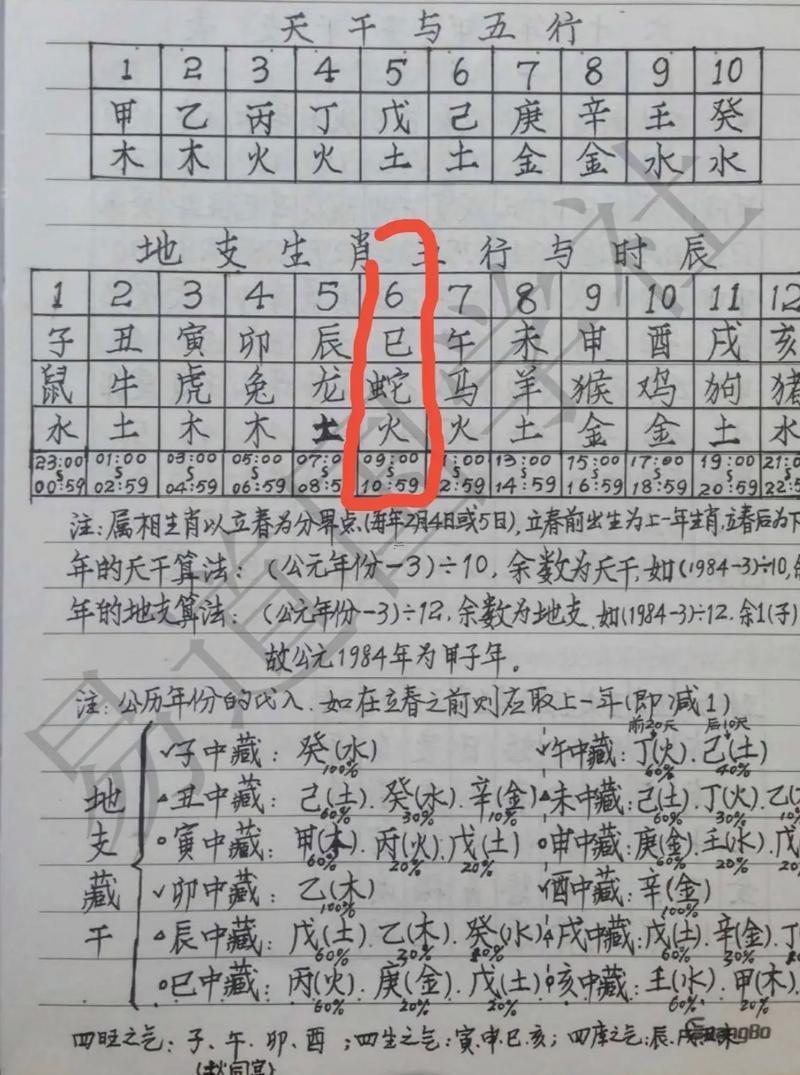 天干与五行
1 2 3 4 5 6 7 8 9 10
甲 乙 丙 丁 戊 己 庚 辛 壬 癸
木 木 火 火 土 土 金 金 水 水
地支生肖五行与时辰
1 2 3 4 5 6 7 8 9 10 11 12
子 丑 寅 卯 辰 巳 午 未 申 酉 戌 亥
鼠 牛 虎 兔 龙 蛇 马 羊 猴 鸡 狗 猪
水 土 木 木 土 火 火 土 金 金 土 水
23:00 01:00 03:00 05:00 07:0 09:00 1:00 13:00 15:00 17:00 19:00 21:0
00:59 02:59 04:59 06:59 08:5 10:59 2:59 14:59 16:59 18:59 20:59 22:5
注:属相生肖以立春为分界点,(每年2月4日或5日),立春前出生为上一年生肖,立春后为下
年的天干算法:(公元年份-3)÷10,余数为天干,如(1984-3)÷10,
年的地支算法:(公元年份-3)÷12,余数为地支.如(1984-3)÷12.余1(子)
故公元1984年为甲子年。
注:公历年份的代入.如在立春之前则应取上一年(即减1)
前20天 后10天
地支藏干
子中藏:癸(水) 午中藏:丁(火).己(土)
100% 60% 40%
丑中藏:己(土).癸(水).辛(金) 未中藏:己(土).丁(火).乙(
60% 30% 10% 60% 30% 10%
寅中藏:甲(木).丙(火).戊(土) 申中藏:庚(金).壬(水).戊
60% 20% 20% 60% 20% 20
卯中藏:乙(木) 酉中藏:辛(金)
100% 100%
辰中藏:戊(土).乙(木).癸(水) 戌中藏:戊(土).辛(金).丁
60% 30% 60% 30%
巳中藏:丙(火).庚(金).戊(土) 亥中藏:壬(水).甲(木).
60% 20% 20% 60% 20%
四旺之气:子、午、卯、酉;四生之气:寅.申.巳.亥;四库之气:辰.戌.丑.未
易道国学社